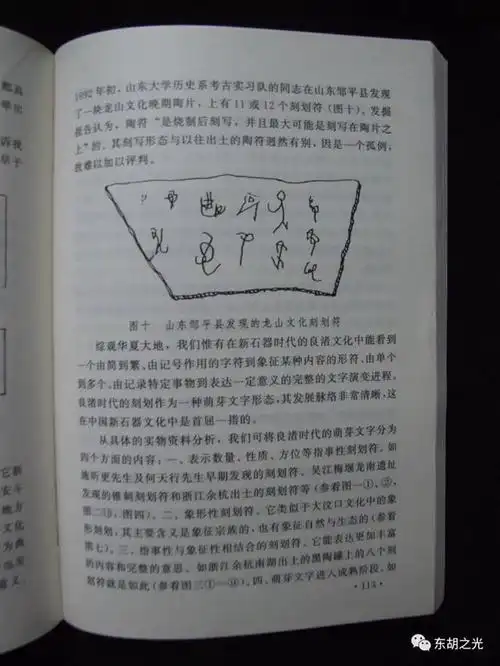 1992年初，山东大学历史系考古实习队的同志在山东邹平县发现
了一块龙山文化晚期陶片，上有11或12个刻划符（图十）。发掘
报告认为，陶符“是烧制后刻写，并且最大可能是刻写在陶片之
上”的。其刻写形态与以往出土的陶符迥然有别，因是一个孤例，
故难以加以评判。
图十　山东邹平县发现的龙山文化刻划符
综观华夏大地，我们惟有在新石器时代的良渚文化中能看到
一个由简到繁、由记号作用的字符到象征某种内容的形符、由单个
到多个、由记录特定事物到表达一定意义的完整的文字演变进程。
良渚时代的刻划作为一种萌芽文字形态，其发展脉络非常清晰，这
在中国新石器文化中是首屈一指的。
从具体的实物资料分析，我们可将良渚时代的萌芽文字分为
四个方面的内容：一、表示数量、性质、方位等指事性刻划符。如
施昕更先生及何天行先生早期发现的刻划符、吴江梅堰龙南遗址
发现的锥刺刻划符和浙江余杭出土的刻划符等（参看图一①、②，
图二⑬，图四）。二、象形性刻划符。它类似于大汶口文化中的象
形刻划，其主要含义是象征宗族的，也有象征自然与生态的（参看
图七）。三、指事性与象征性相结合的刻划符。它能表达更加丰富
的内容和完整的意思。如浙江余杭南湖出土的黑陶罐上的八个刻
划符就是如此（参看图三①—⑩）。四、萌芽文字进入成熟阶段。如
· 113 ·
诉我
它新
地方
文化
为典
东胡之光